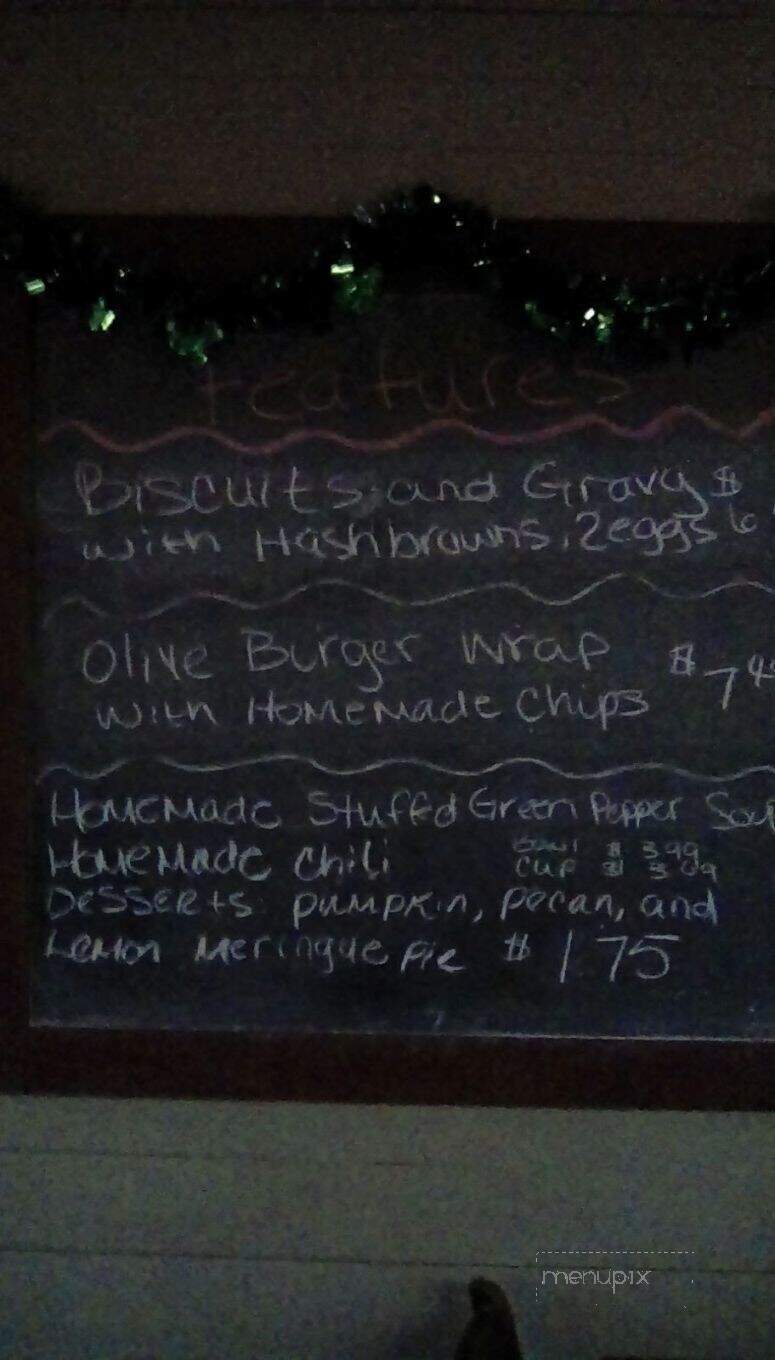 Features
Biscuits and Gravy $
with Hashbrowns, 2eggs 6
Olive Burger wrap $ 7
with Homemade chips
Homemade Stuffed Green Pepper
Homemade chili
Bowl $ 3.99
cup $
Desserts: pumpkin, pecan, and
Lemon Meringue pie $ 1.75
menupix